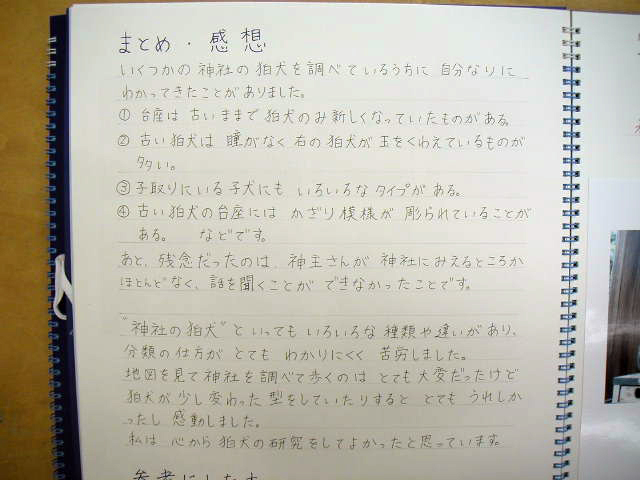 まとめ・感想
いくつかの神社の狛犬を調べているうちに自分なりに
わかってきたことがありました。
① 台座は古いままで狛犬のみ新しくなっていたものがある。
② 古い狛犬は 瞳がなく右の狛犬が玉をくわえているものが
多い。
③ 子取りにいる子犬にも いろいろなタイプがある。
④ 古い狛犬の台座には かざり模様が彫られていることが
ある。 などです。
あと、残念だったのは、神主さんが神社にみえるところか
ほとんどなく、話を聞くことができなかったことです。
"神社の狛犬"といってもいろいろな種類や違いがあり、
分類の仕方がとてもわかりにくく苦労しました。
地図を見て神社を調べて歩くのはとても大変だったけど
狛犬が少し変わった型をしていたりするととてもうれしか
ったし感動しました。
私は心から狛犬の研究をしてよかったと思っています。